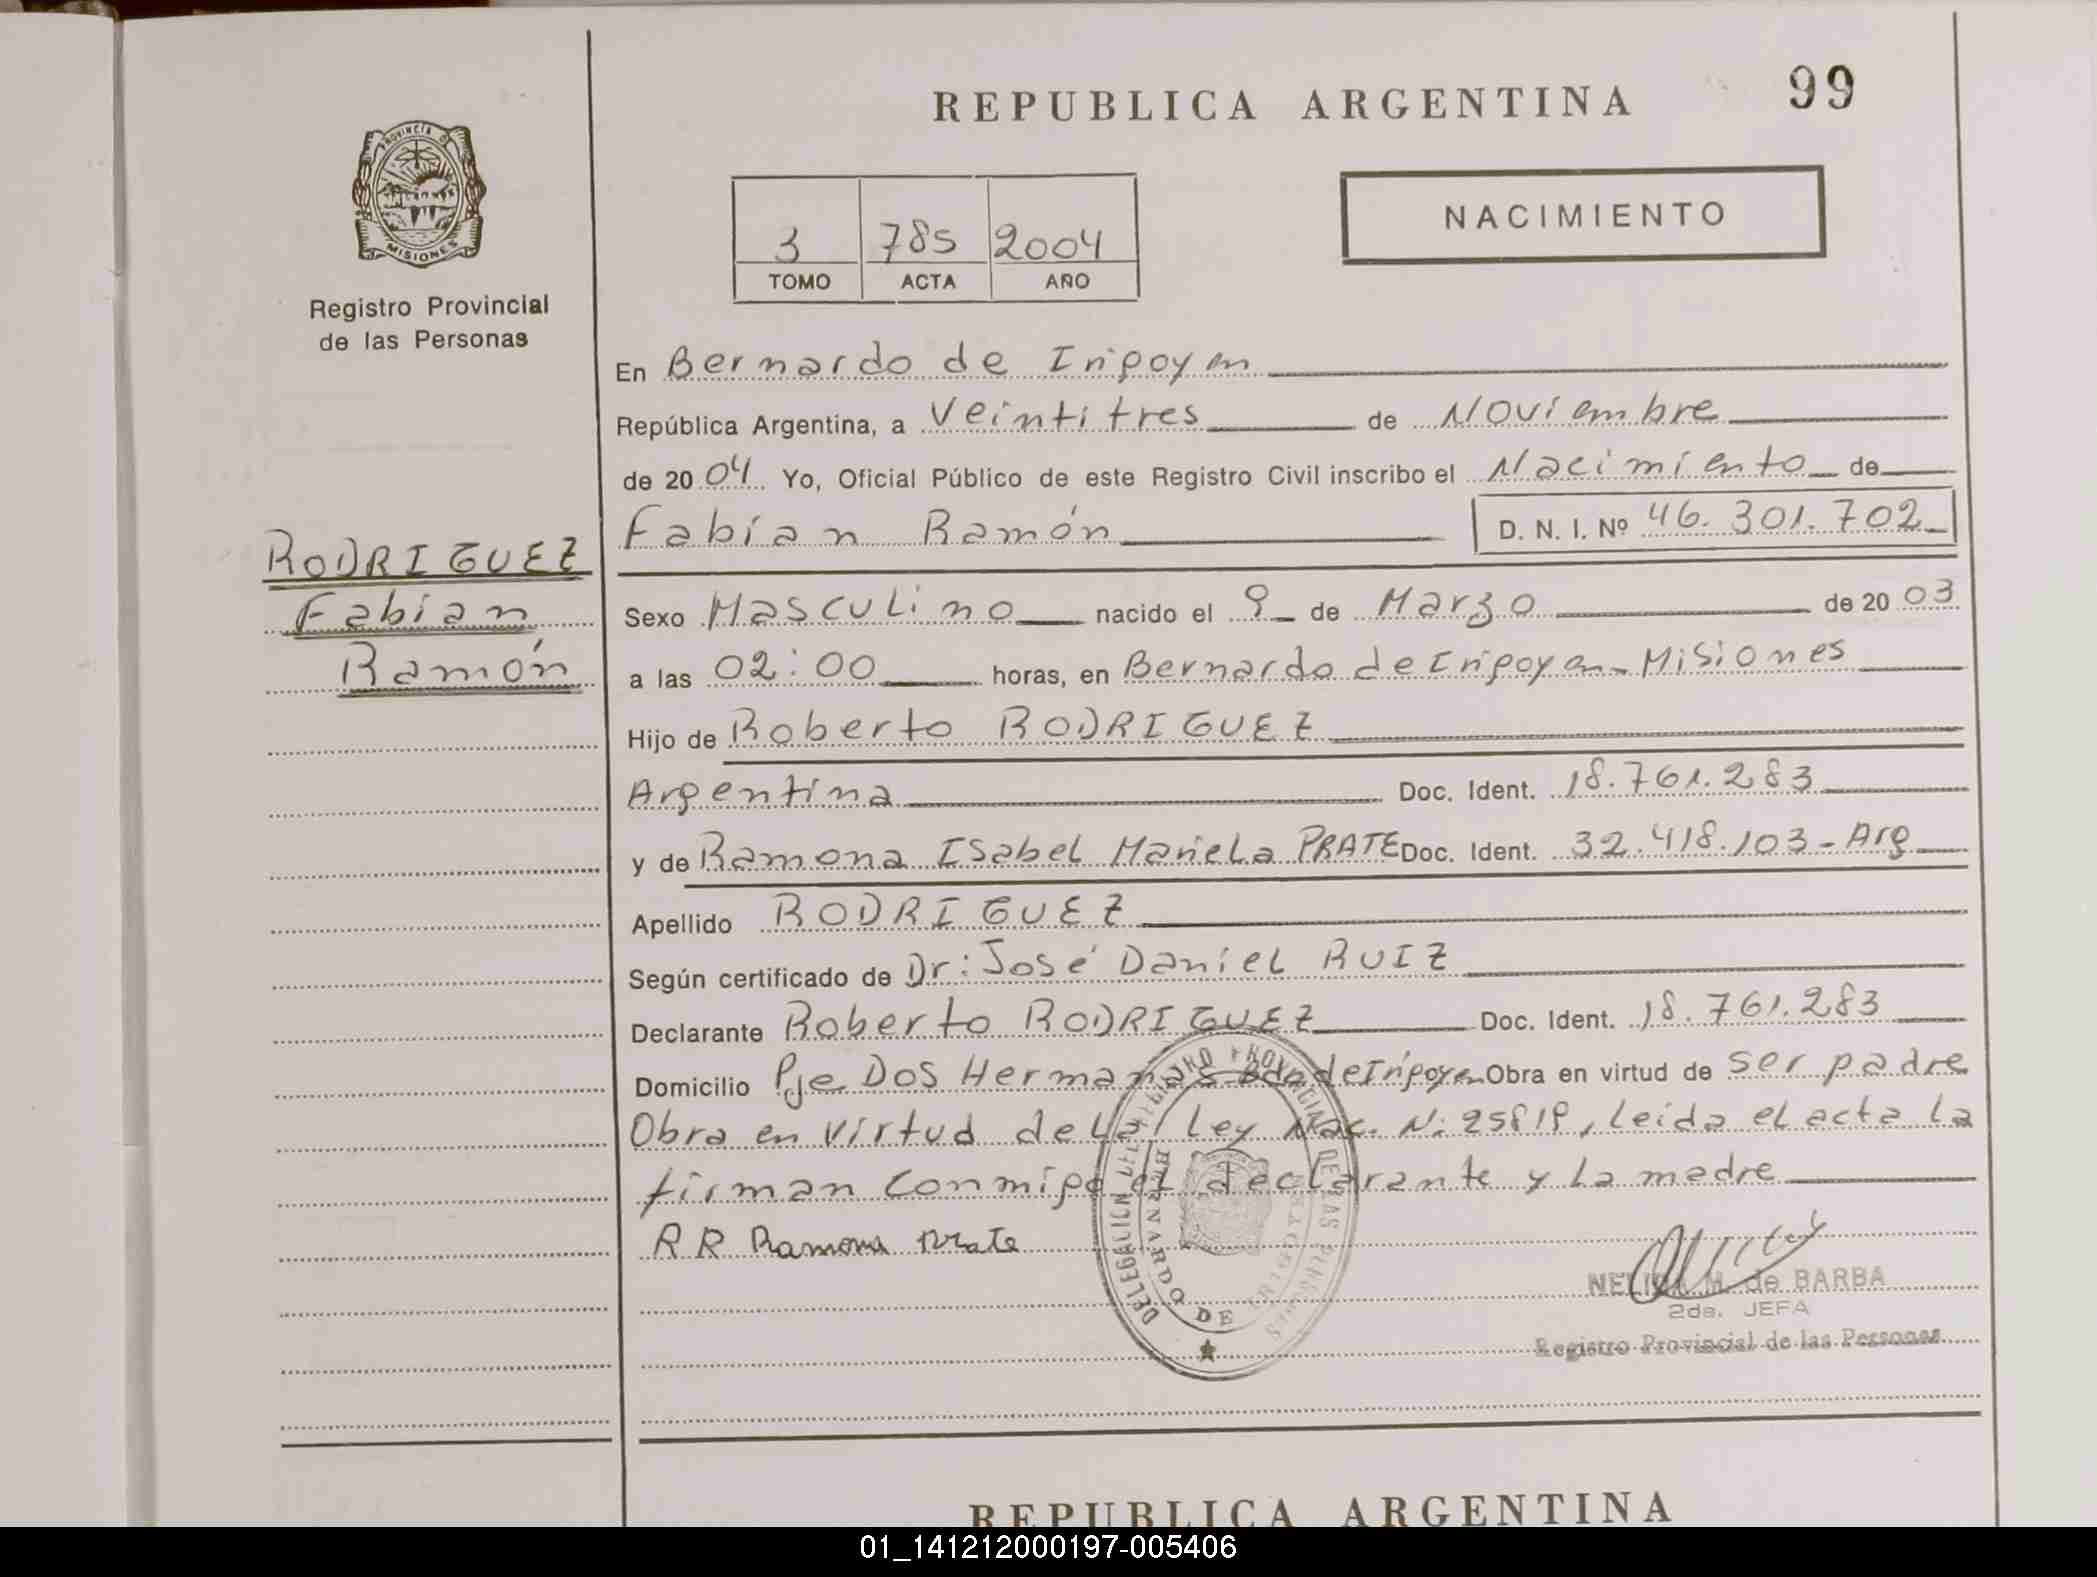 REPUBLICA ARGENTINA
99
PROVINCIA DE
MISIONES
Registro Provincial
de las Personas
3 785 2004
TOMO ACTA AÑO
NACIMIENTO
En Bernardo de Irigoyen
República Argentina, a Veintitres de Noviembre
de 2004 Yo, Oficial Público de este Registro Civil inscribo el Nacimiento de
Fabían Ramón D. N. I. Nº 46.301.702
RODRIGUEZ
Fabían
Ramón
Sexo Masculino nacido el 9 de Marzo de 2003
a las 02:00 horas, en Bernardo de Irigoyen - Misiones
Hijo de Roberto RODRIGUEZ
Argentina Doc. Ident. 18.761.283
y de Ramona Isabel Mariela PRATE Doc. Ident. 32.418.103 - Arg
Apellido RODRIGUEZ
Según certificado de Dr: José Daniel RUIZ
Declarante Roberto RODRIGUEZ Doc. Ident. 18.761.283
Domicilio Pje Dos Hermanas Bdo de Irigoyen Obra en virtud de ser padre
Obra en virtud de la Ley Nac. N: 25819, leída el acta la
firman conmigo el declarante y la madre
RR Ramona Prate
DELEGACION DEL REGISTRO PROVINCIAL DE LAS PERSONAS
BERNARDO DE IRIGOYEN
NELIDA M. de BARBA
2da. JEFA
Registro Provincial de las Personas
REPUBLICA ARGENTINA
01_141212000197-005406